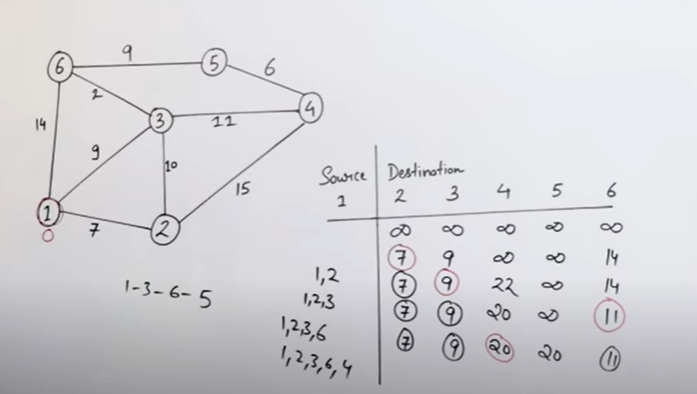 9
6
5
6
2
3
11
4
14
9
10
15
1
7
2
0
1-3-6-5
Source Destination
1 2 3 4 5 6
∞ ∞ ∞ ∞ ∞
7 9 ∞ ∞ 14
1,2 7 9 22 ∞ 14
1,2,3 7 9 20 ∞ 11
1,2,3,6 7 9 20 20 11
1,2,3,6,4